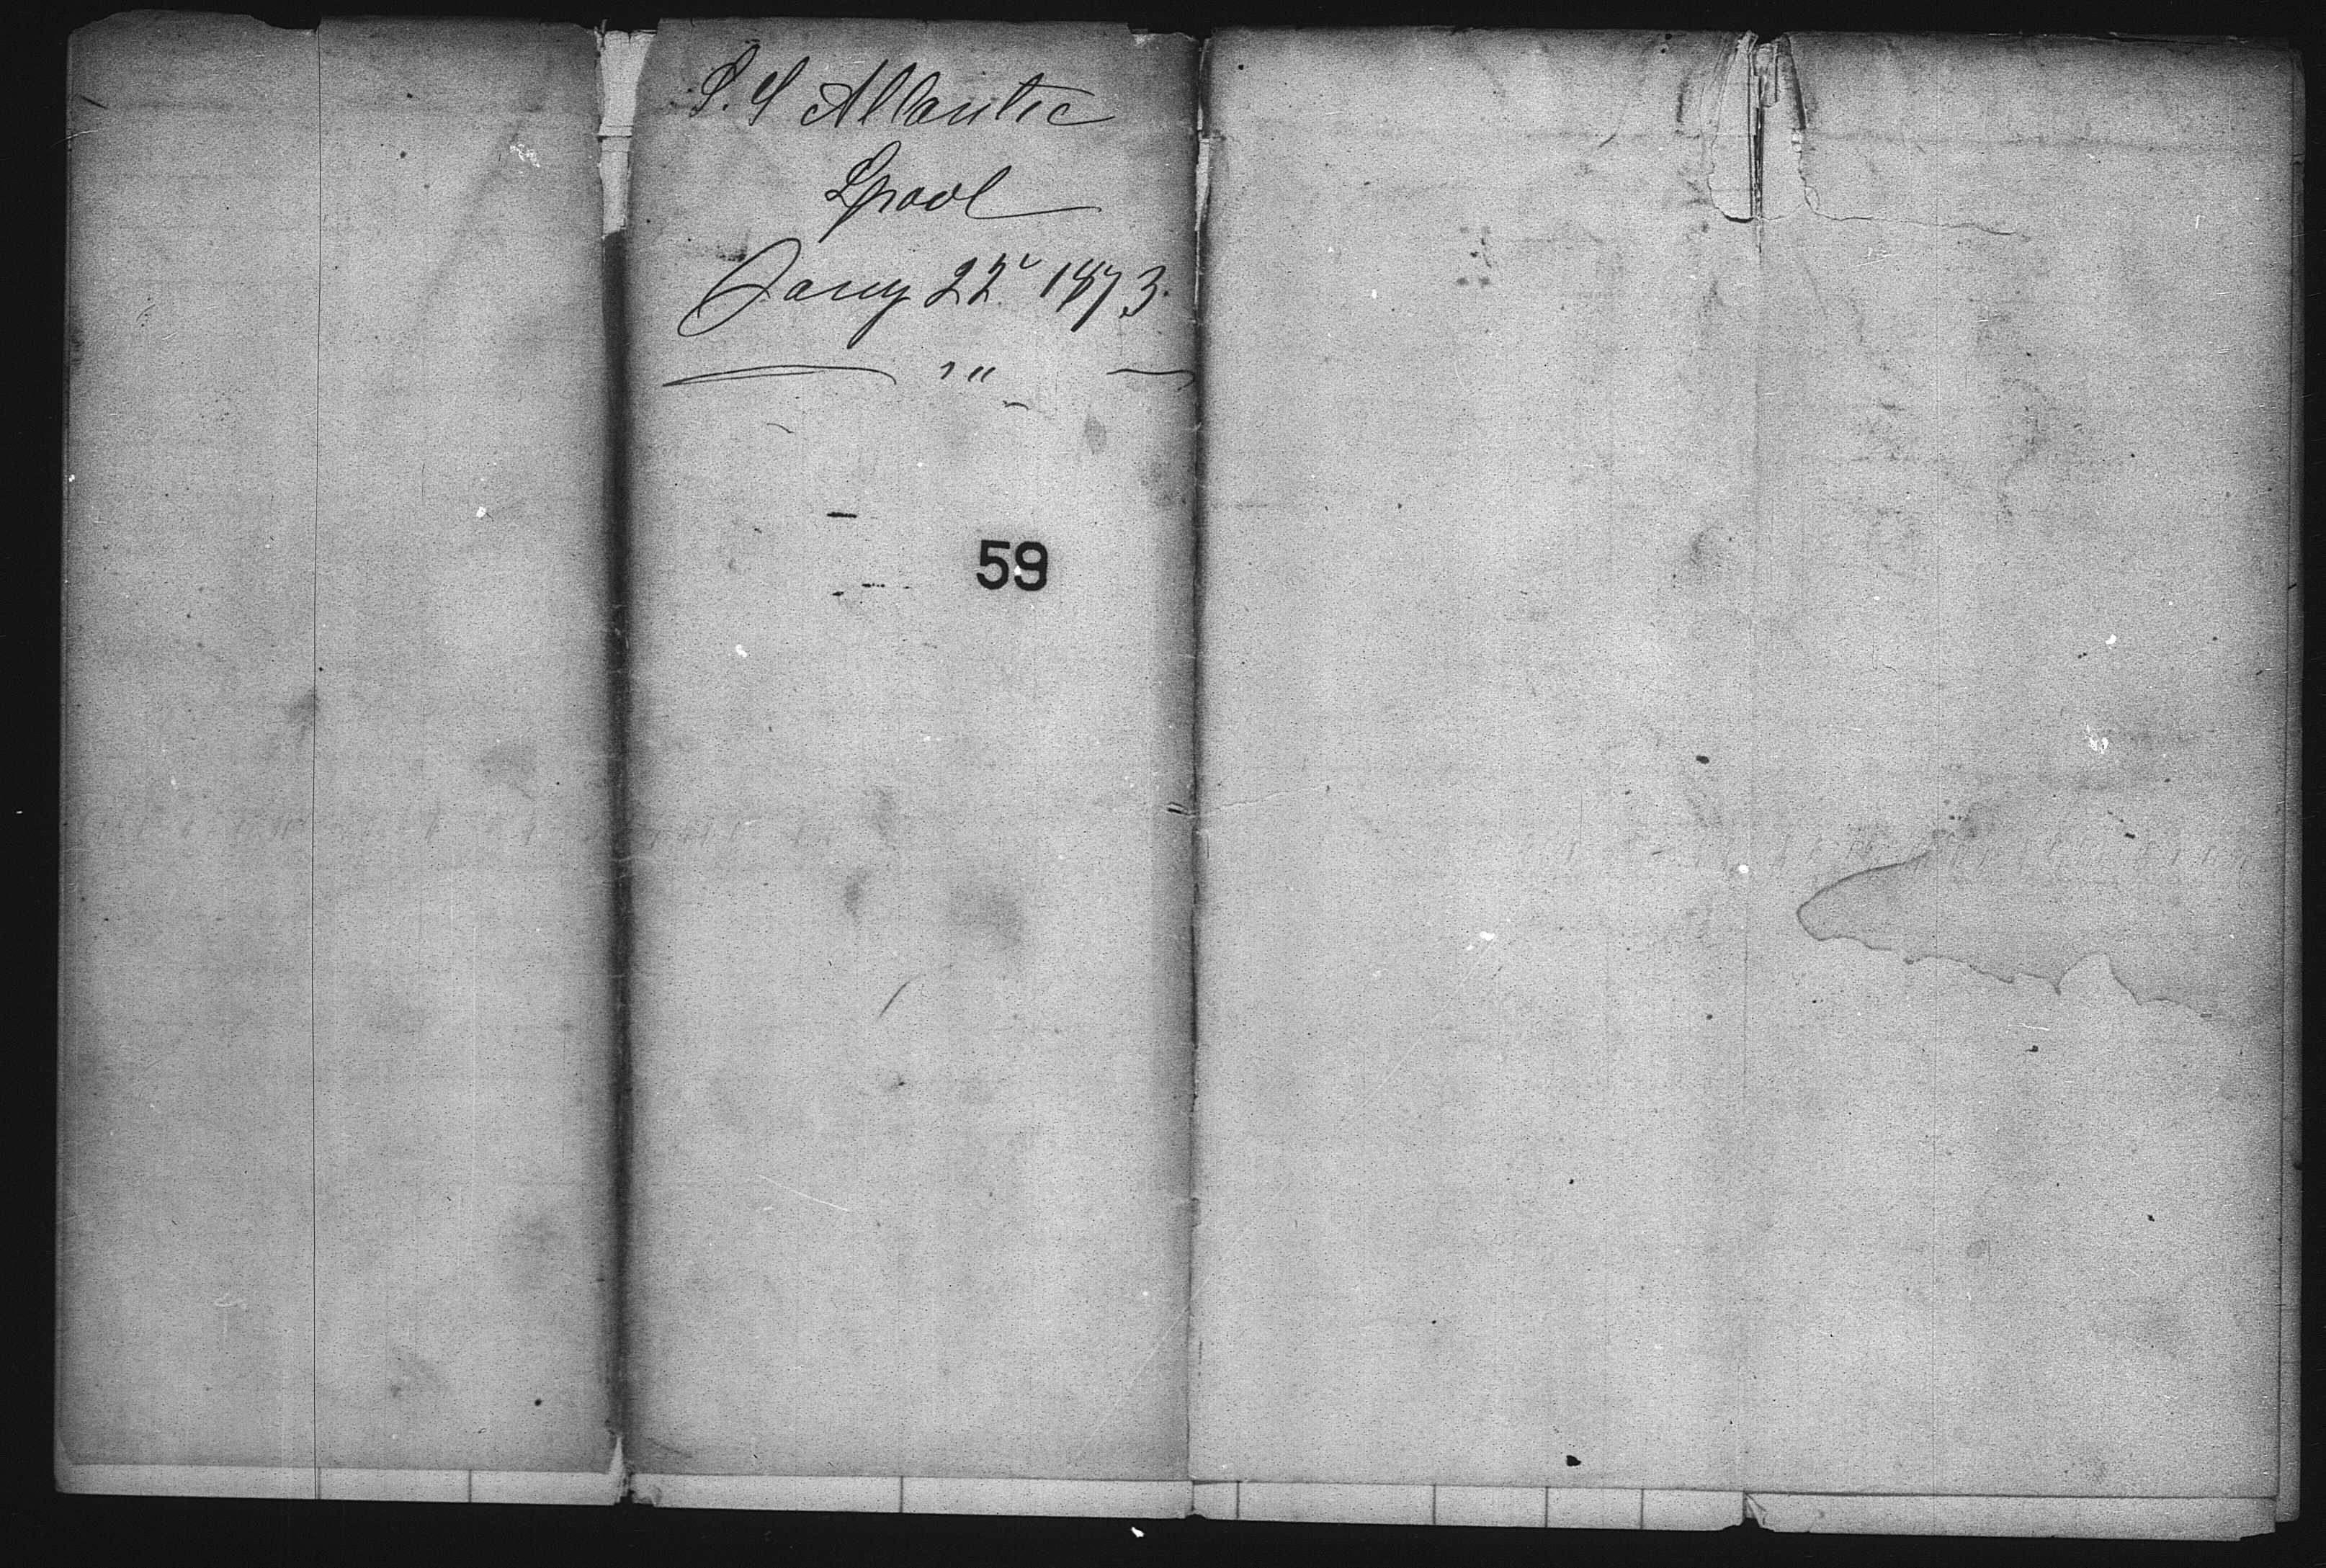 S.S Atlantic
Lpool
Jany 22" 1873.
" "
59